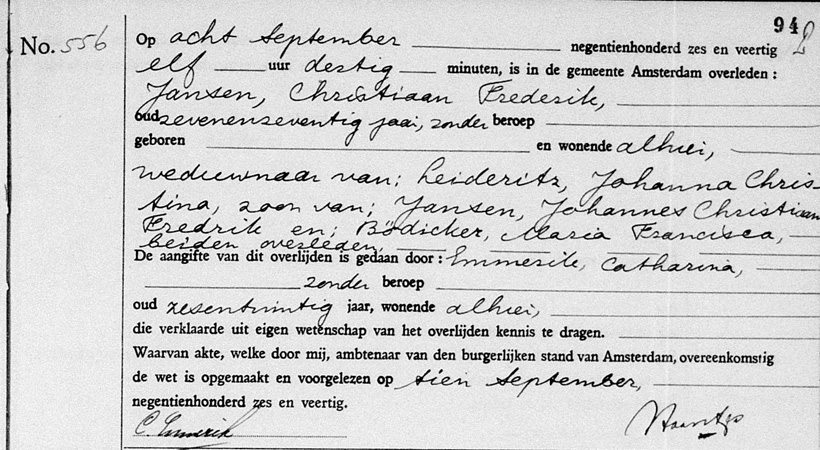 94
No. 556
Op acht September negentienhonderd zes en veertig
elf uur dertig minuten, is in de gemeente Amsterdam overleden :
Jansen, Christiaan Frederik,
oud zevenenzeventig jaar, zonder beroep
geboren en wonende alhier,
weduwnaar van; Leideritz, Johanna Chris-
tina, zoon van; Jansen, Johannes Christiaan
Fredrik en; Bödicker, Maria Francisca,
beiden overleden,
De aangifte van dit overlijden is gedaan door : Emmerik, Catharina,
zonder beroep
oud zesentwintig jaar, wonende alhier,
die verklaarde uit eigen wetenschap van het overlijden kennis te dragen.
Waarvan akte, welke door mij, ambtenaar van den burgerlijken stand van Amsterdam, overeenkomstig
de wet is opgemaakt en voorgelezen op tien September,
negentienhonderd zes en veertig.
C. Emmerik